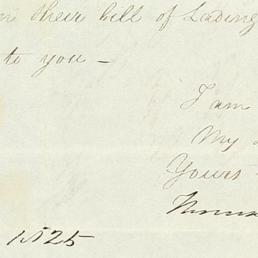 their bill of Lading
to you –
I am
My
Yours
1825